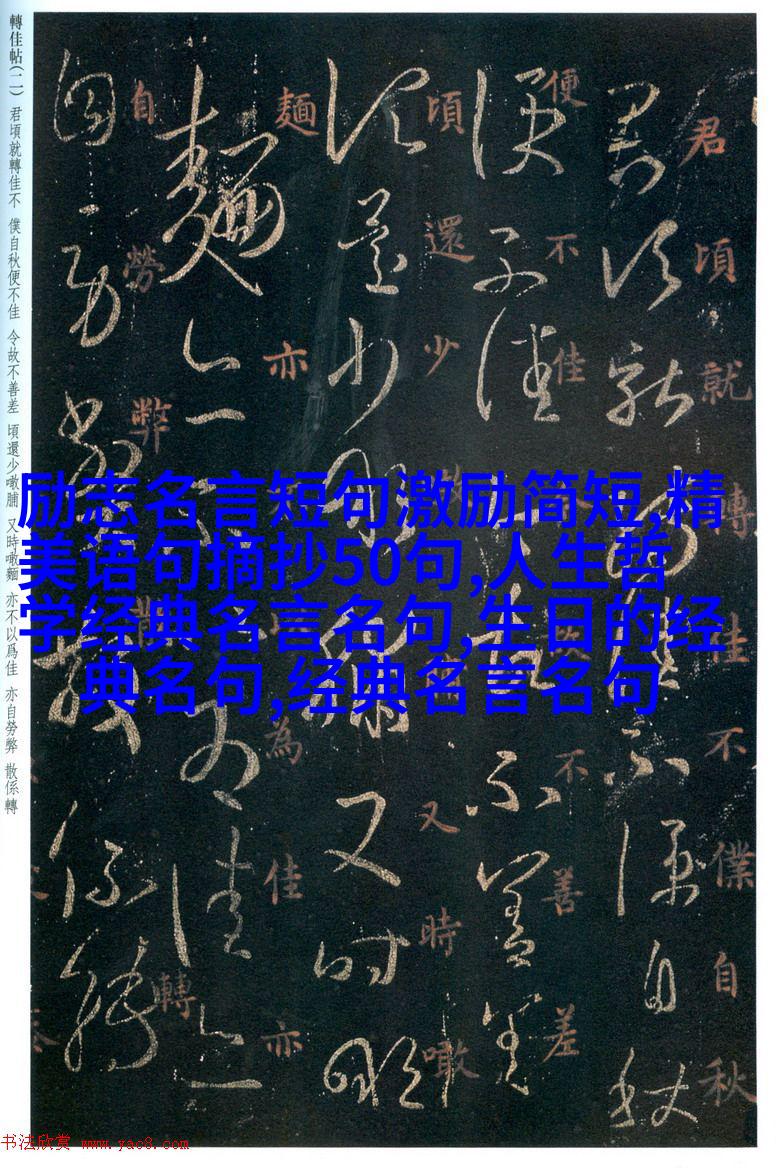 轉佳帖(二) 君頃就轉佳不 僕自秋便不佳 今故不善差 頃還少噉脯 又時噉麵 亦不以爲佳 亦自勞弊 散係轉
君頃就轉佳不僕自秋
便不佳今故不善差
頃還少噉脯又時噉
麵亦不以為佳亦
自勞弊散係轉
励志名言短句激励简短,精
美语句摘抄50句,人生哲
学经典名言名句,生日的经
典名句,经典名言名句
书法欣赏 www.yac8.com